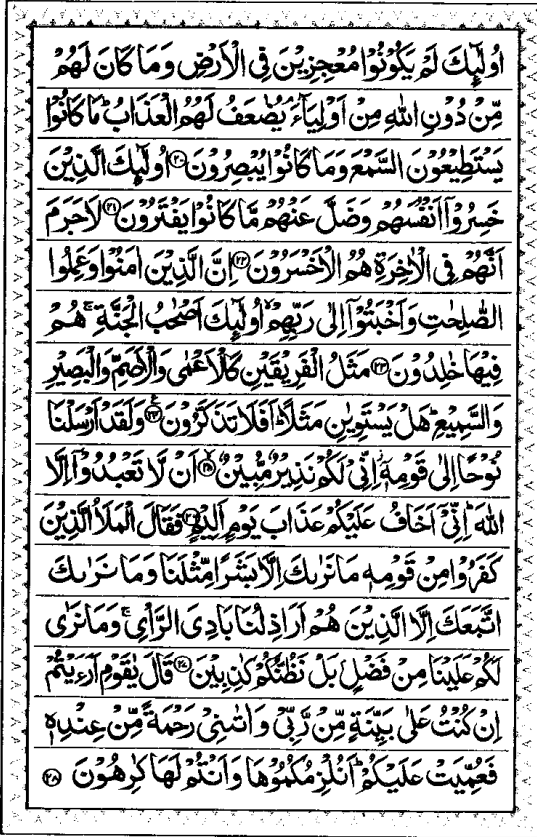 اُولٰٓئِكَ لَمْ يَكُوْنُوْا مُعْجِزِيْنَ فِي الْاَرْضِ وَمَا كَانَ لَهُمْ
مِّنْ دُوْنِ اللّٰهِ مِنْ اَوْلِيَآءَ ۘ يُضٰعَفُ لَهُمُ الْعَذَابُ ؕ مَا كَانُوْا
يَسْتَطِيْعُوْنَ السَّمْعَ وَمَا كَانُوْا يُبْصِرُوْنَ ﴿۲۰﴾ اُولٰٓئِكَ الَّذِيْنَ
خَسِرُوْۤا اَنْفُسَهُمْ وَضَلَّ عَنْهُمْ مَّا كَانُوْا يَفْتَرُوْنَ ﴿۲۱﴾ لَاجَرَمَ
اَنَّهُمْ فِي الْاٰخِرَةِ هُمُ الْاَخْسَرُوْنَ ﴿۲۲﴾ اِنَّ الَّذِيْنَ اٰمَنُوْا وَعَمِلُوا
الصّٰلِحٰتِ وَاَخْبَتُوْۤا اِلٰى رَبِّهِمْ ۙ اُولٰٓئِكَ اَصْحٰبُ الْجَنَّةِ ۚ هُمْ
فِيْهَا خٰلِدُوْنَ ﴿۲۳﴾ مَثَلُ الْفَرِيْقَيْنِ كَالْاَعْمٰى وَالْاَصَمِّ وَالْبَصِيْرِ
وَالسَّمِيْعِ ؕ هَلْ يَسْتَوِيٰنِ مَثَلًا ؕ اَفَلَا تَذَكَّرُوْنَ ﴿۲۴﴾ وَلَقَدْ اَرْسَلْنَا
نُوْحًا اِلٰى قَوْمِهٖۤ ؗ اِنِّيْ لَكُمْ نَذِيْرٌ مُّبِيْنٌ ﴿۲۵﴾ اَنْ لَّا تَعْبُدُوْۤا اِلَّا
اللّٰهَ ؕ اِنِّيْۤ اَخَافُ عَلَيْكُمْ عَذَابَ يَوْمٍ اَلِيْمٍ ﴿۲۶﴾ فَقَالَ الْمَلَاُ الَّذِيْنَ
كَفَرُوْا مِنْ قَوْمِهٖ مَا نَرٰىكَ اِلَّا بَشَرًا مِّثْلَنَا وَمَا نَرٰىكَ
اتَّبَعَكَ اِلَّا الَّذِيْنَ هُمْ اَرَاذِلُنَا بَادِيَ الرَّاْيِ ۚ وَمَا نَرٰى
لَكُمْ عَلَيْنَا مِنْ فَضْلٍۭ بَلْ نَظُنُّكُمْ كٰذِبِيْنَ ﴿۲۷﴾ قَالَ يٰقَوْمِ اَرَءَيْتُمْ
اِنْ كُنْتُ عَلٰى بَيِّنَةٍ مِّنْ رَّبِّيْ وَاٰتٰىنِيْ رَحْمَةً مِّنْ عِنْدِهٖ
فَعُمِّيَتْ عَلَيْكُمْ ؕ اَنُلْزِمُكُمُوْهَا وَاَنْتُمْ لَهَا كٰرِهُوْنَ ﴿۲۸﴾